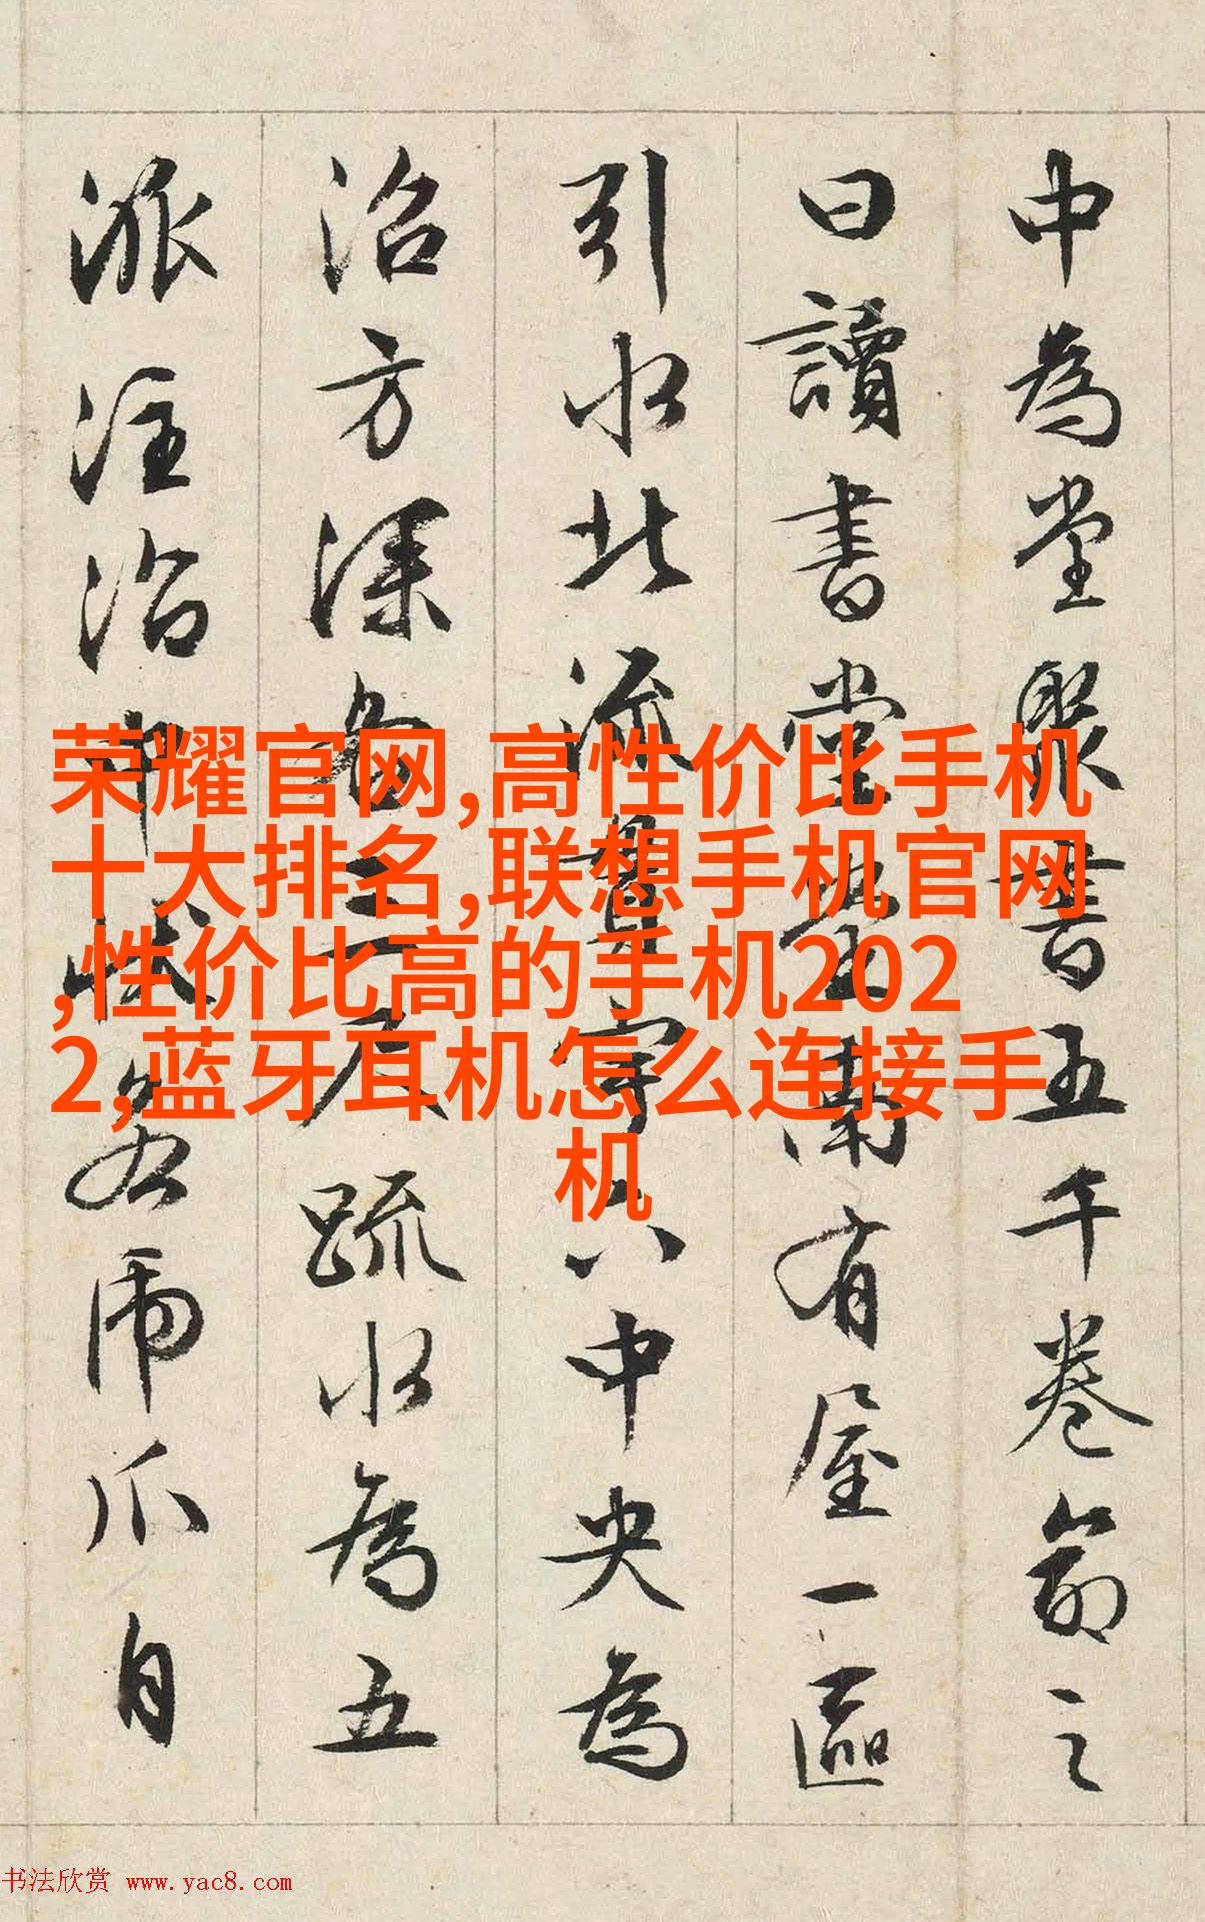 中為堂聚書五千卷命之
曰讀書堂堂南有屋一區
引水北流貫宇下中央為
沼方深各三尺疏水為五
派注沼中狀若虎爪自
荣耀官网,高性价比手机
十大排名,联想手机官网
,性价比高的手机202
2,蓝牙耳机怎么连接手
机
书法欣赏 www.yac8.com